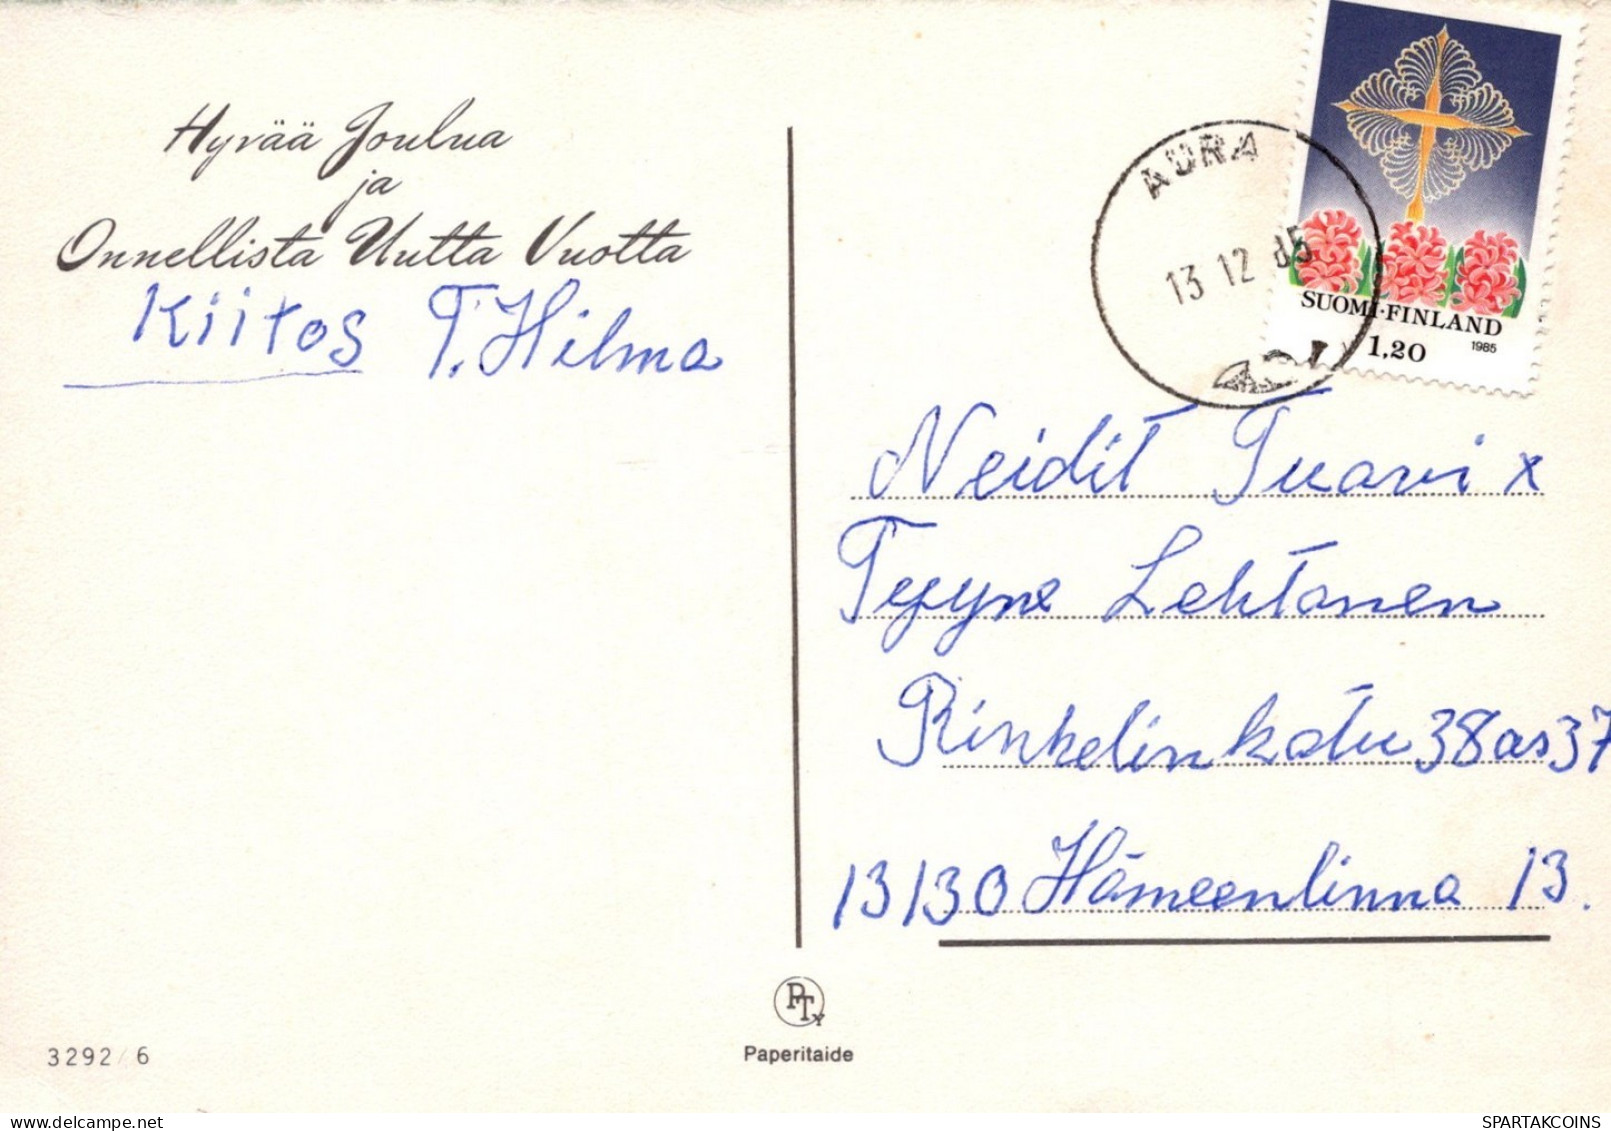 Hyvää Joulua
ja
Onnellista Uutta Vuotta
Kiitos T. Hilma
3292/6
PTy
Paperitaide
AURA
13 12 85
SUOMI·FINLAND
1,20
1985
Neidit Tuovi x
Lehtonen
Rinkelinkatu 38 as 37
13130 Hämeenlinna 13.
www.delcampe.net
SPARTAKCOINS